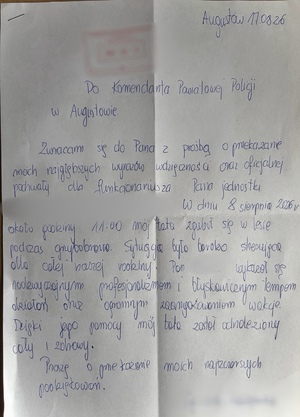 Augustów 17.08.26
Do Komendanta Powiatowej Policji
w Augustowie
Zwracam się do Pana z prośbą o przekazanie
moich najgłębszych wyrazów wdzięczności oraz oficjalnej
pochwały dla funkcjonariusza Pana jednostki
W dniu 8 sierpnia 2026r
około godziny 11.00 mój tata zgubił się w lesie
podczas grzybobrania. Sytuacja była bardzo stresująca
dla całej naszej rodziny. Pan wykazał się
nadzwyczajnym profesjonalizmem i błyskawicznym tempem
działań oraz ogromnym zaangażowaniem w akcję.
Dzięki jego pomocy mój tata został odnaleziony
cały i zdrowy.
Proszę o przekazanie moich najszczerszych
podziękowań.